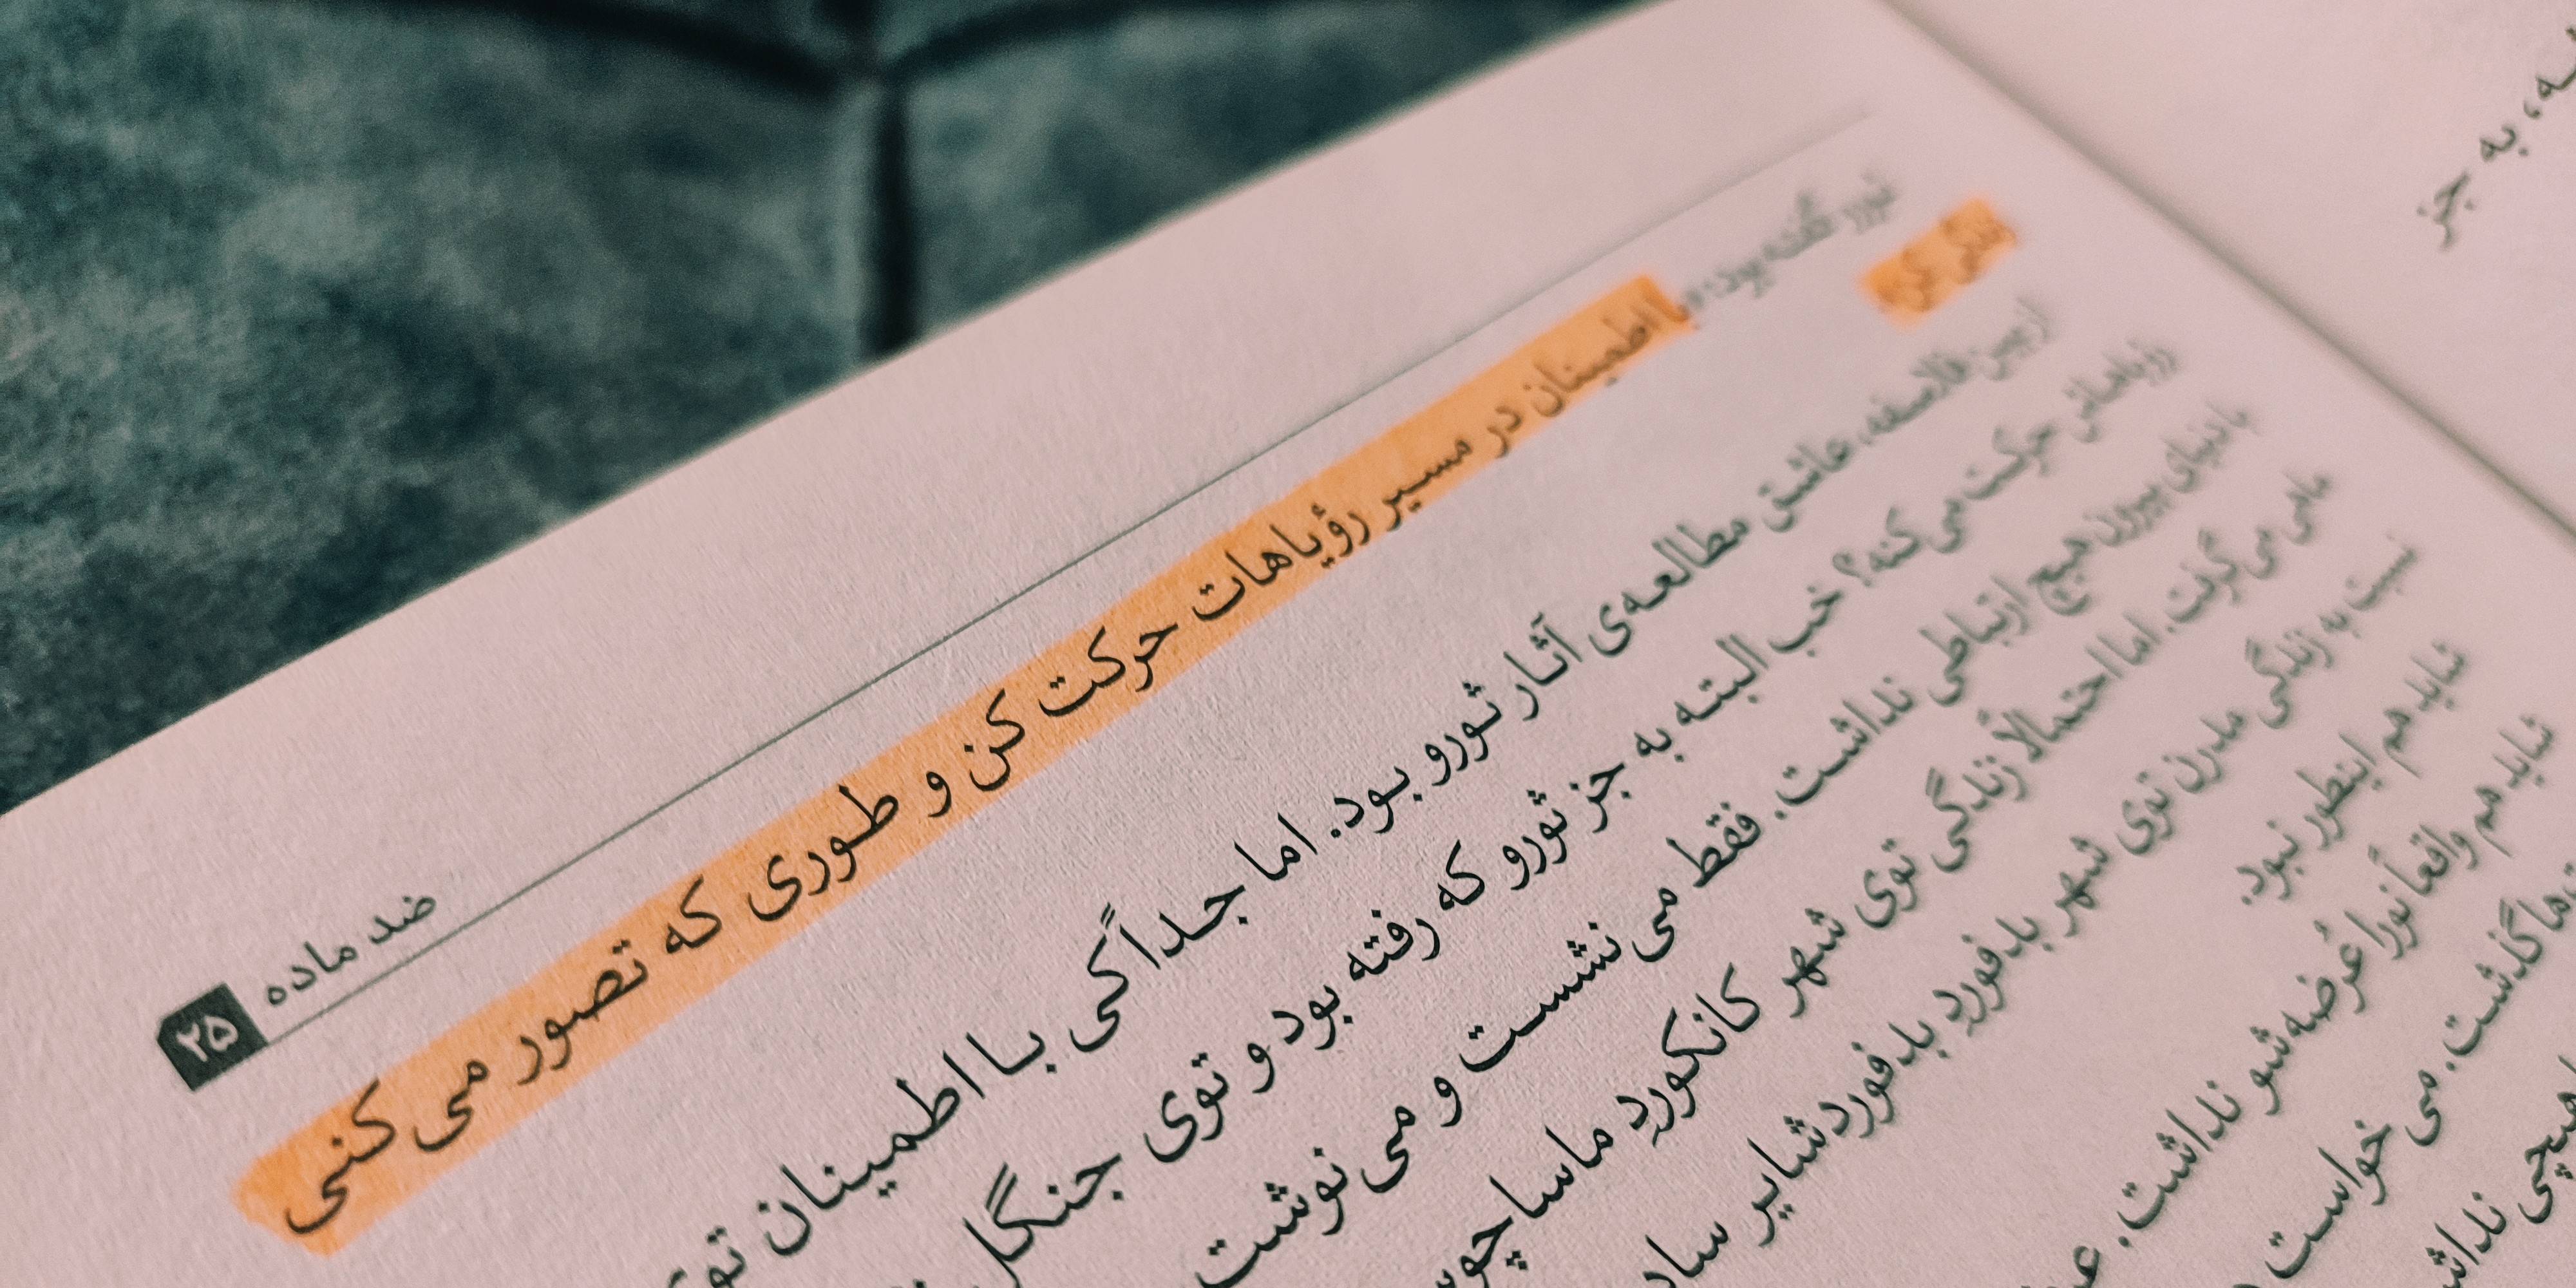 ضد ماده ۲۵
ثورو گفته بود: «با اطمینان در مسیر رؤیاهات حرکت کن و طوری که تصور می‌کنی
زندگی کن.»
از بین فلاسفه، عاشق مطالعه‌ی آثار ثورو بود. اما جداً کی با اطمینان توی
رؤیاهاش حرکت می‌کنه؟ خب البته به جز ثورو که رفته بود و توی جنگل
با دنیای بیرون هیچ ارتباطی نداشت. فقط می‌نشست و می‌نوشت
ماهی می‌گرفت. اما احتمالاً زندگی توی شهر کانکورد ماساچوست
نسبت به زندگی مدرن توی شهر بدفورد بدفوردشایر ساده
شاید هم اینطور نبود.
شاید هم واقعاً نورا عُرضه‌شو نداشت.
گذشت. می‌خواست
هیچی
به جز